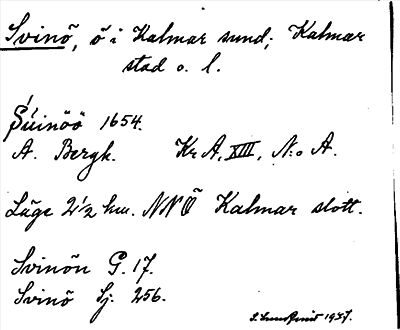 Svinö, ö i Kalmar sund; Kalmar
stad o. l.
Súinöö 1654.
A. Bergh. Kr A, XIII, N:o A.
Läge 2 1/2 km. NNÖ Kalmar slott.
Svinön G. 17.
Svinö Sj. 256.
1937.